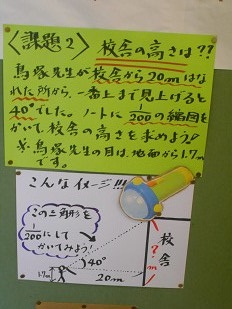 〈課題2〉 校舎の高さは??
鳥塚先生が校舎から20mはな
れた所から、一番上まで見上げると
40°でした。ノートに 1/200 の縮図を
かいて校舎の高さを求めよう!
※鳥塚先生の目は、地面から1.7m
です。
こんなイメージ!!!
この三角形を
1/200にして
かいてみよう!
校舎
?m
40°
1.7m
20m